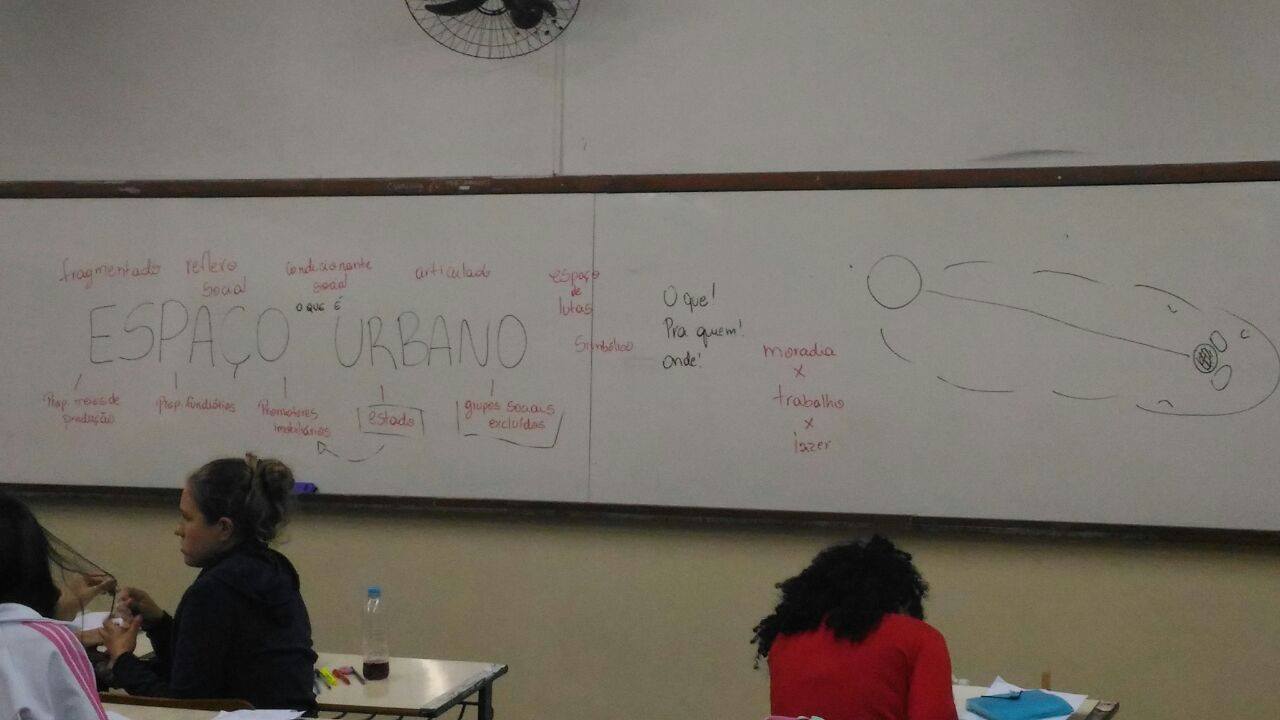 fragmentado
reflexo
social
condicionante
social
articulado
espaço
de
lutas
simbólico
O QUE É
ESPAÇO URBANO
Prop. meios de
produção
Prop. fundiários
Promotores
imobiliários
estado
grupos sociais
excluídos
O que!
Pra quem!
onde!
moradia
x
trabalho
x
lazer